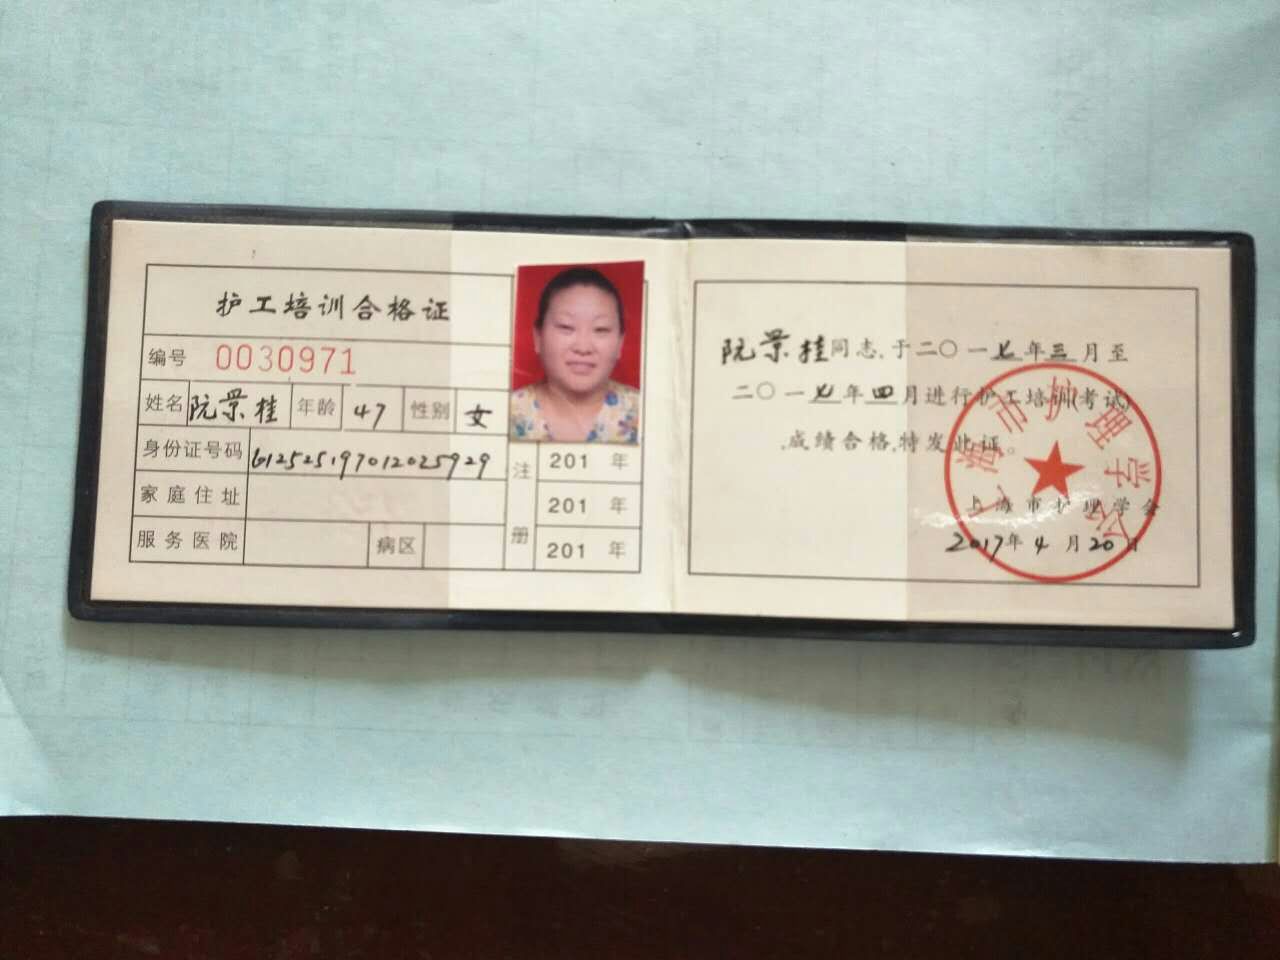 护工培训合格证
编号 0030971
姓名 阮景桂 年龄 47 性别 女
身份证号码 612525197012025929
家庭住址
服务医院 病区
注册
201 年
201 年
201 年
阮景桂同志,于二〇一七年三月至
二〇一七年四月进行护工培训(考试)
,成绩合格,特发此证。
上海市护理学会
2017年4月20日
上海市护理学会